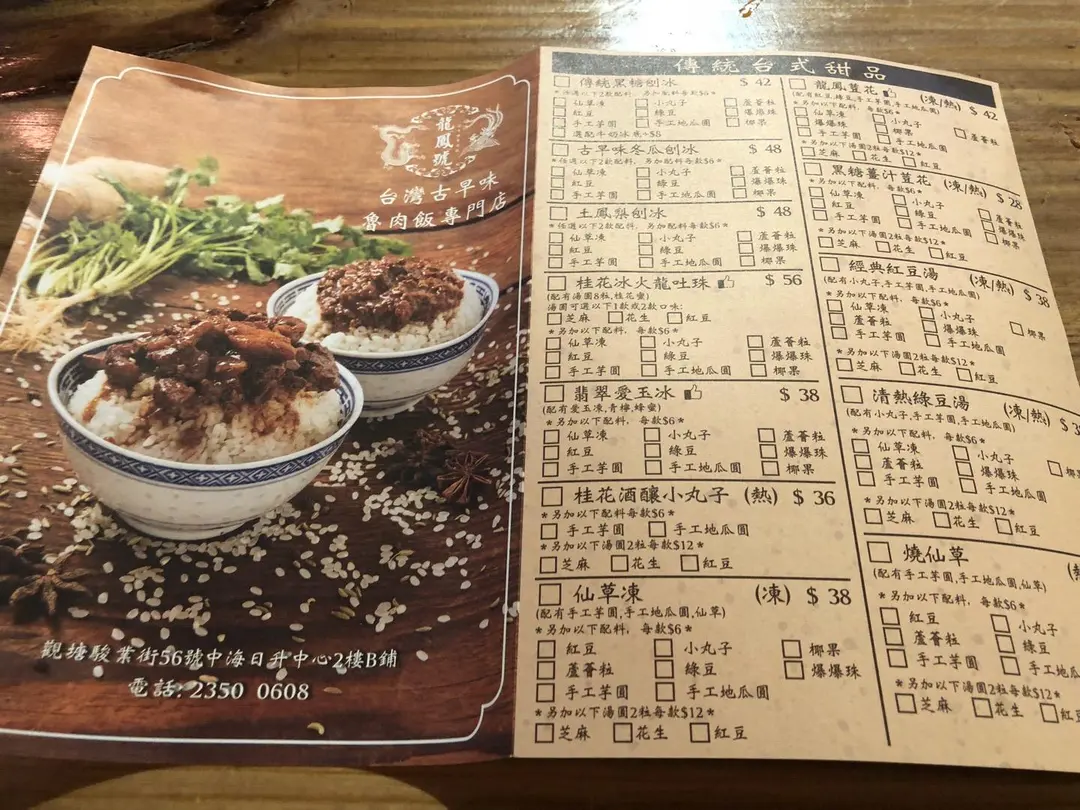 龍鳳號
台灣古早味
魯肉飯專門店
觀塘駿業街56號中海日升中心2樓B鋪
電話: 2350 0608
傳統台式甜品
傳統黑糖刨冰 $ 42
*任選以下2款配料, 另加配料每款$6*
仙草凍 小丸子 蘆薈粒
紅豆 綠豆 爆爆珠
手工芋圓 手工地瓜圓 椰果
選配牛奶冰底+$8
古早味冬瓜刨冰 $ 48
*任選以下2款配料, 另加配料每款$6*
仙草凍 小丸子 蘆薈粒
紅豆 綠豆 爆爆珠
手工芋圓 手工地瓜圓 椰果
土鳳梨刨冰 $ 48
*任選以下2款配料, 另加配料每款$6*
仙草凍 小丸子 蘆薈粒
紅豆 綠豆 爆爆珠
手工芋圓 手工地瓜圓 椰果
桂花冰火龍吐珠 $ 56
(配有湯圓8粒,桂花蜜)
湯圓可選以下1款或2款口味:
芝麻 花生 紅豆
*另加以下配料, 每款$6*
仙草凍 小丸子 蘆薈粒
紅豆 綠豆 爆爆珠
手工芋圓 手工地瓜圓 椰果
翡翠愛玉冰 $ 38
(配有愛玉凍,青檸,蜂蜜)
*另加以下配料, 每款$6*
仙草凍 小丸子 蘆薈粒
紅豆 綠豆 爆爆珠
手工芋圓 手工地瓜圓 椰果
桂花酒釀小丸子 (熱) $ 36
*另加以下配料每款$6*
手工芋圓 手工地瓜圓
*另加以下湯圓2粒每款$12*
芝麻 花生 紅豆
仙草凍 (凍) $ 38
(配有手工芋圓,手工地瓜圓,仙草)
*另加以下配料, 每款$6*
紅豆 小丸子 椰果
蘆薈粒 綠豆 爆爆珠
手工芋圓 手工地瓜圓
*另加以下湯圓2粒每款$12*
芝麻 花生 紅豆
龍鳳荳花 (凍/熱) $ 42
(配有紅豆,綠豆,手工芋圓,手工地瓜圓)
*另加以下配料, 每款$6*
仙草凍 小丸子 蘆薈粒
爆爆珠 椰果
手工芋圓 手工地瓜圓
*另加以下湯圓2粒每款$12*
芝麻 花生 紅豆
黑糖薑汁荳花 (凍/熱) $ 28
*另加以下配料, 每款$6*
仙草凍 小丸子 蘆薈粒
紅豆 綠豆 爆爆珠
手工芋圓 手工地瓜圓 椰果
*另加以下湯圓2粒每款$12*
芝麻 花生 紅豆
經典紅豆湯 (凍/熱) $ 38
(配有小丸子,手工芋圓,手工地瓜圓)
*另加以下配料, 每款$6*
仙草凍 小丸子 椰果
蘆薈粒 爆爆珠
手工芋圓 手工地瓜圓
*另加以下湯圓2粒每款$12*
芝麻 花生 紅豆
清熱綠豆湯 (凍/熱) $ 3
(配有小丸子,手工芋圓,手工地瓜圓)
*另加以下配料, 每款$6*
仙草凍 小丸子 椰
蘆薈粒 爆爆珠
手工芋圓 手工地瓜圓
*另加以下湯圓2粒每款$12*
芝麻 花生 紅豆
燒仙草
(配有手工芋圓,手工地瓜圓,仙草)
*另加以下配料, 每款$6*
紅豆 小丸子
蘆薈粒 綠豆
手工芋圓 手工地瓜
*另加以下湯圓2粒每款$12*
芝麻 花生 紅豆